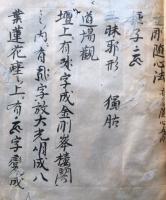 剛随心法
種子
三昧耶形 獨股
道場觀
壇上有字成金剛峯樓閣
之内有字放大光明成八
葉蓮花座上有字變成